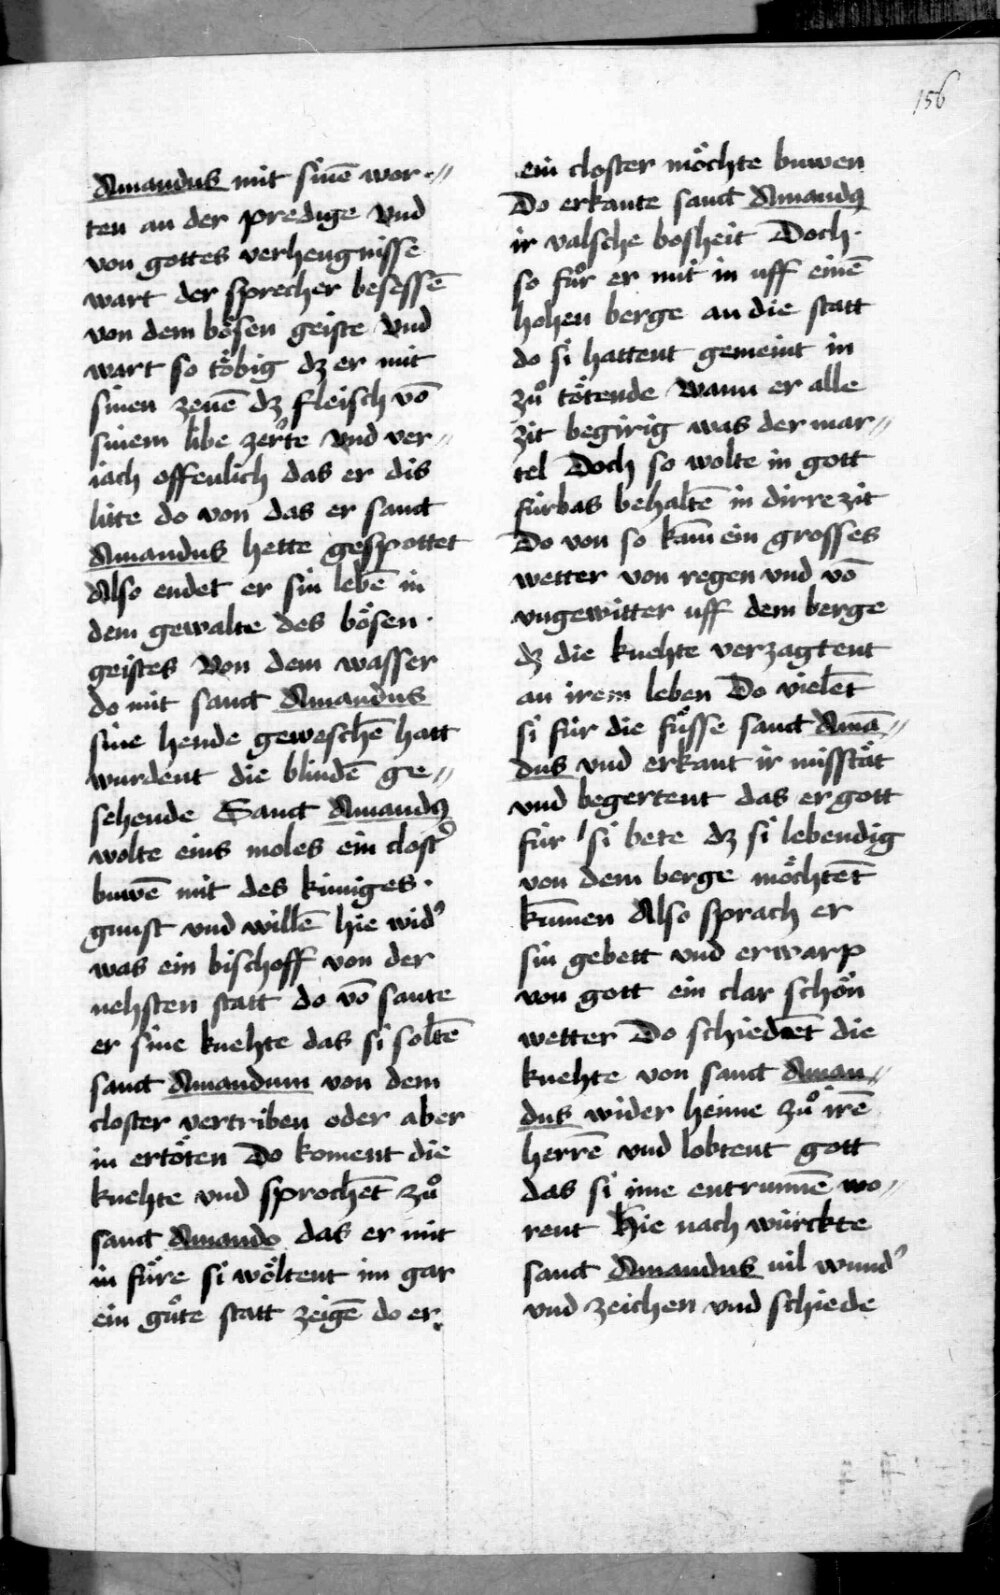 156
Amandus mit sinē wor-
ten an der predige vnd
von gottes verhengnisse
wart der sprecher besessē
von dem bösen geiste vnd
wart so töbig dz er mit
sinen zenē dz fleisch vō
sinem libe zerte vnd ver-
iach offenlich das er dis
litte do von das er sanct
Amandus hette gespottet
Also endet er sin lebē in
dem gewalte des bösen
geistes Von dem wasser
do mit sanct Amandus
sine hende geweschē hatt
wurdent die blindē ge-
sehende Sanct Amandꝰ
wolte eins moles ein clost᾽
buwē mit des küniges
gunst vnd willē hie wid᾽
was ein bischoff von der
nehsten statt do vō sante
er sine knehte das si soltē
sanct Amandum von dem
closter vertriben oder aber
in ertöten Do koment die
knehte vnd sprochēt zuͦ
sanct Amando das er mit
in füre si wöltent im gar
ein guͦte statt zeigē do er
ein closter möchte buwen
Do erkante sanct Amandꝰ
ir valsche bosheit Doch
so fuͦr er mit in uff einē
hohen berge an die statt
do si hattent gemeint in
zuͦ tötende wann er alle
zit begirig was der mar-
tel Doch so wolte in gott
fürbas behaltē in dirre zit
Do von so kam ein grosses
wetter von regen vnd vō
vngewitter uff dem berge
dz die knehte verzagtent
an irem leben Do vielēt
si für die füsse sanct Amā-
dus vnd erkant ir missetät
vnd begertent das er gott
für si bete dz si lebendig
von dem berge möchtēt
kūmen Also sprach er
sin gebett vnd erwarp
von gott ein clar schön
wetter Do schiedēt die
knehte von sanct Aman-
dus wider heime zuͦ irē
herrē vnd lobtent gott
das si ime entrunnē wo-
rent Hie nach würckte
sanct Amandus vil wund᾽
vnd zeichen vnd schiede